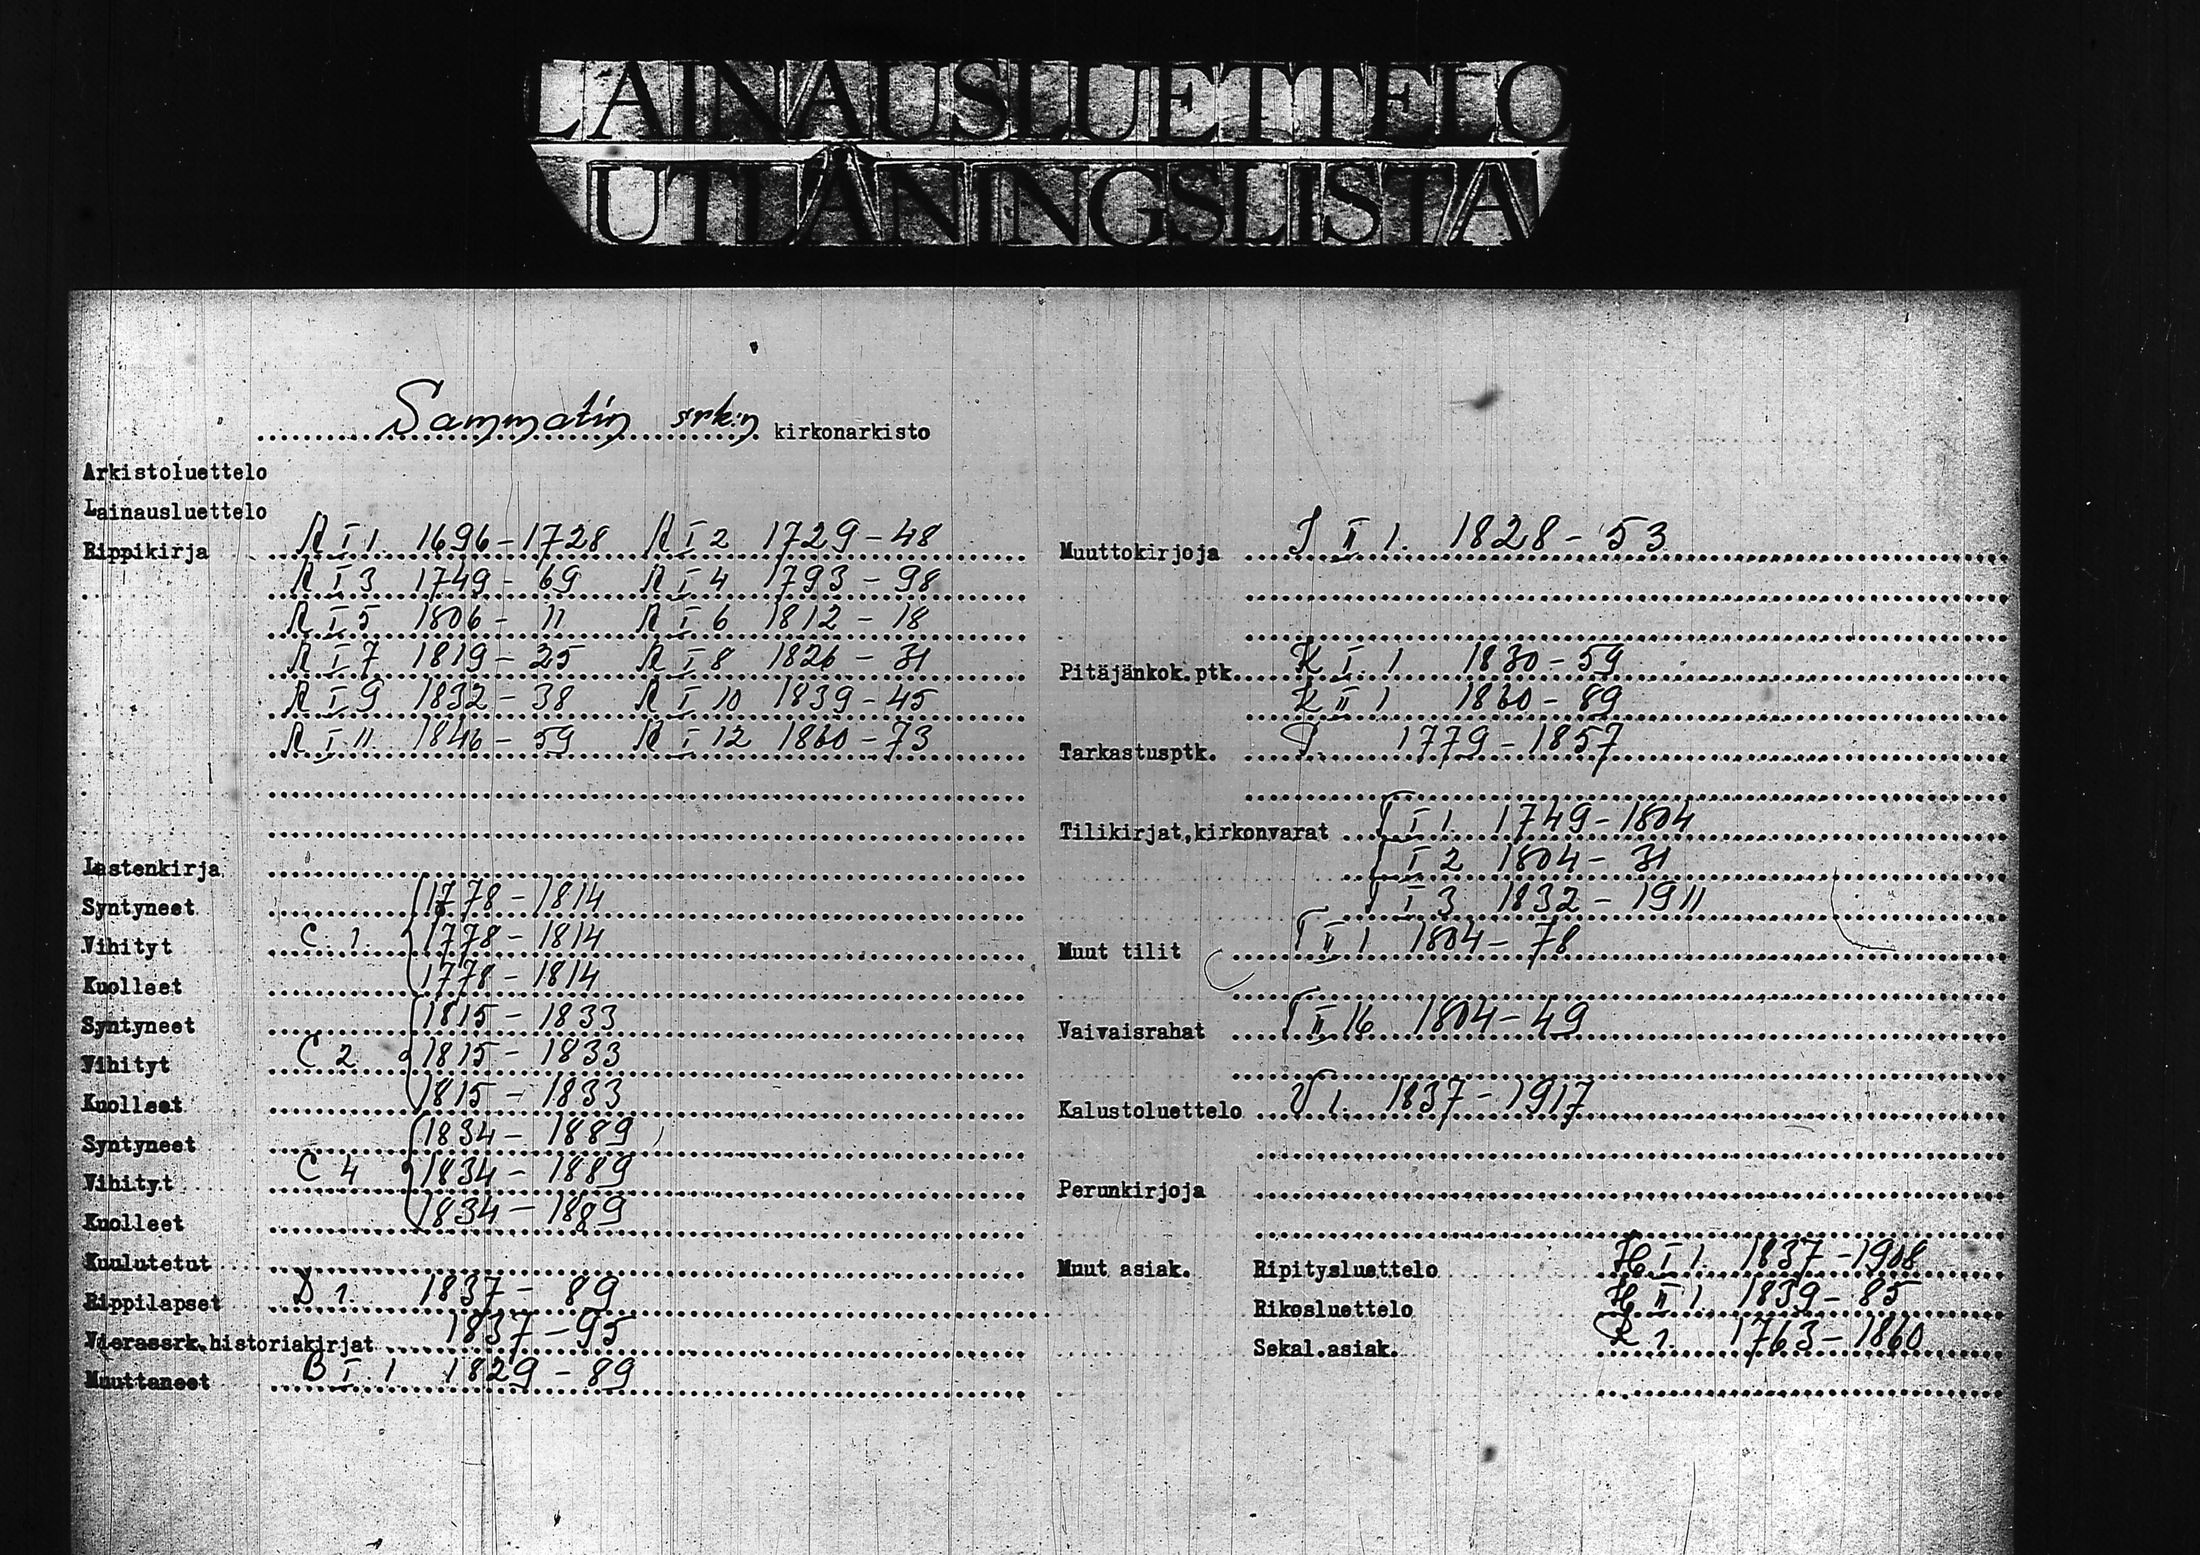 LAINAUSLUETTELO
UTLÅNINGSLISTA
Sammatin srk:n kirkonarkisto
Arkistoluettelo
Lainausluettelo
Rippikirja A I 1 1696-1728 A I 2 1729-48
A I 3 1749-69 A I 4 1793-98
A I 5 1806-11 A I 6 1812-18
A I 7 1819-25 A I 8 1826-31
A I 9 1832-38 A I 10 1839-45
A I 11 1846-59 A I 12 1860-73
Lastenkirja
Syntyneet 1778-1814
Vihityt C 1. 1778-1814
Kuolleet 1778-1814
Syntyneet 1815-1833
Vihityt C 2 1815-1833
Kuolleet 1815-1833
Syntyneet 1834-1889
Vihityt C 4 1834-1889
Kuolleet 1834-1889
Kuulutetut
Rippilapset D 1. 1837-89
Vierassrk.historiakirjat 1837-95
Muuttaneet B I 1 1829-89
Muuttokirjoja J II 1. 1828-53
Pitäjänkok.ptk. K I 1 1830-59
K II 1 1860-89
Tarkastusptk. P. 1779-1857
Tilikirjat,kirkonvarat T I 1. 1749-1804
T I 2 1804-31
T I 3 1832-1911
Muut tilit T II 1 1804-78
Vaivaisrahat T II 16 1804-49
Kalustoluettelo V 1. 1837-1917
Perunkirjoja
Muut asiak. Ripitysluettelo H I 1. 1837-1908
Rikosluettelo H II 1. 1839-85
Sekal.asiak. R 1. 1763-1860